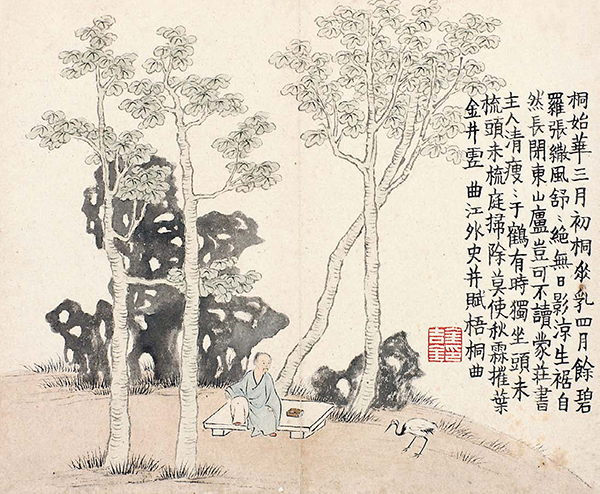 桐始華三月初桐乳四月餘碧
羅張微風舒〻絕無日影涼生裾自
然長閉東山廬豈可不讀蒙莊書
主人清瘦〻于鶴有時獨坐頭未
梳頭未梳庭掃除莫使秋霖摧葉
金井虛 曲江外史并賦梧桐曲